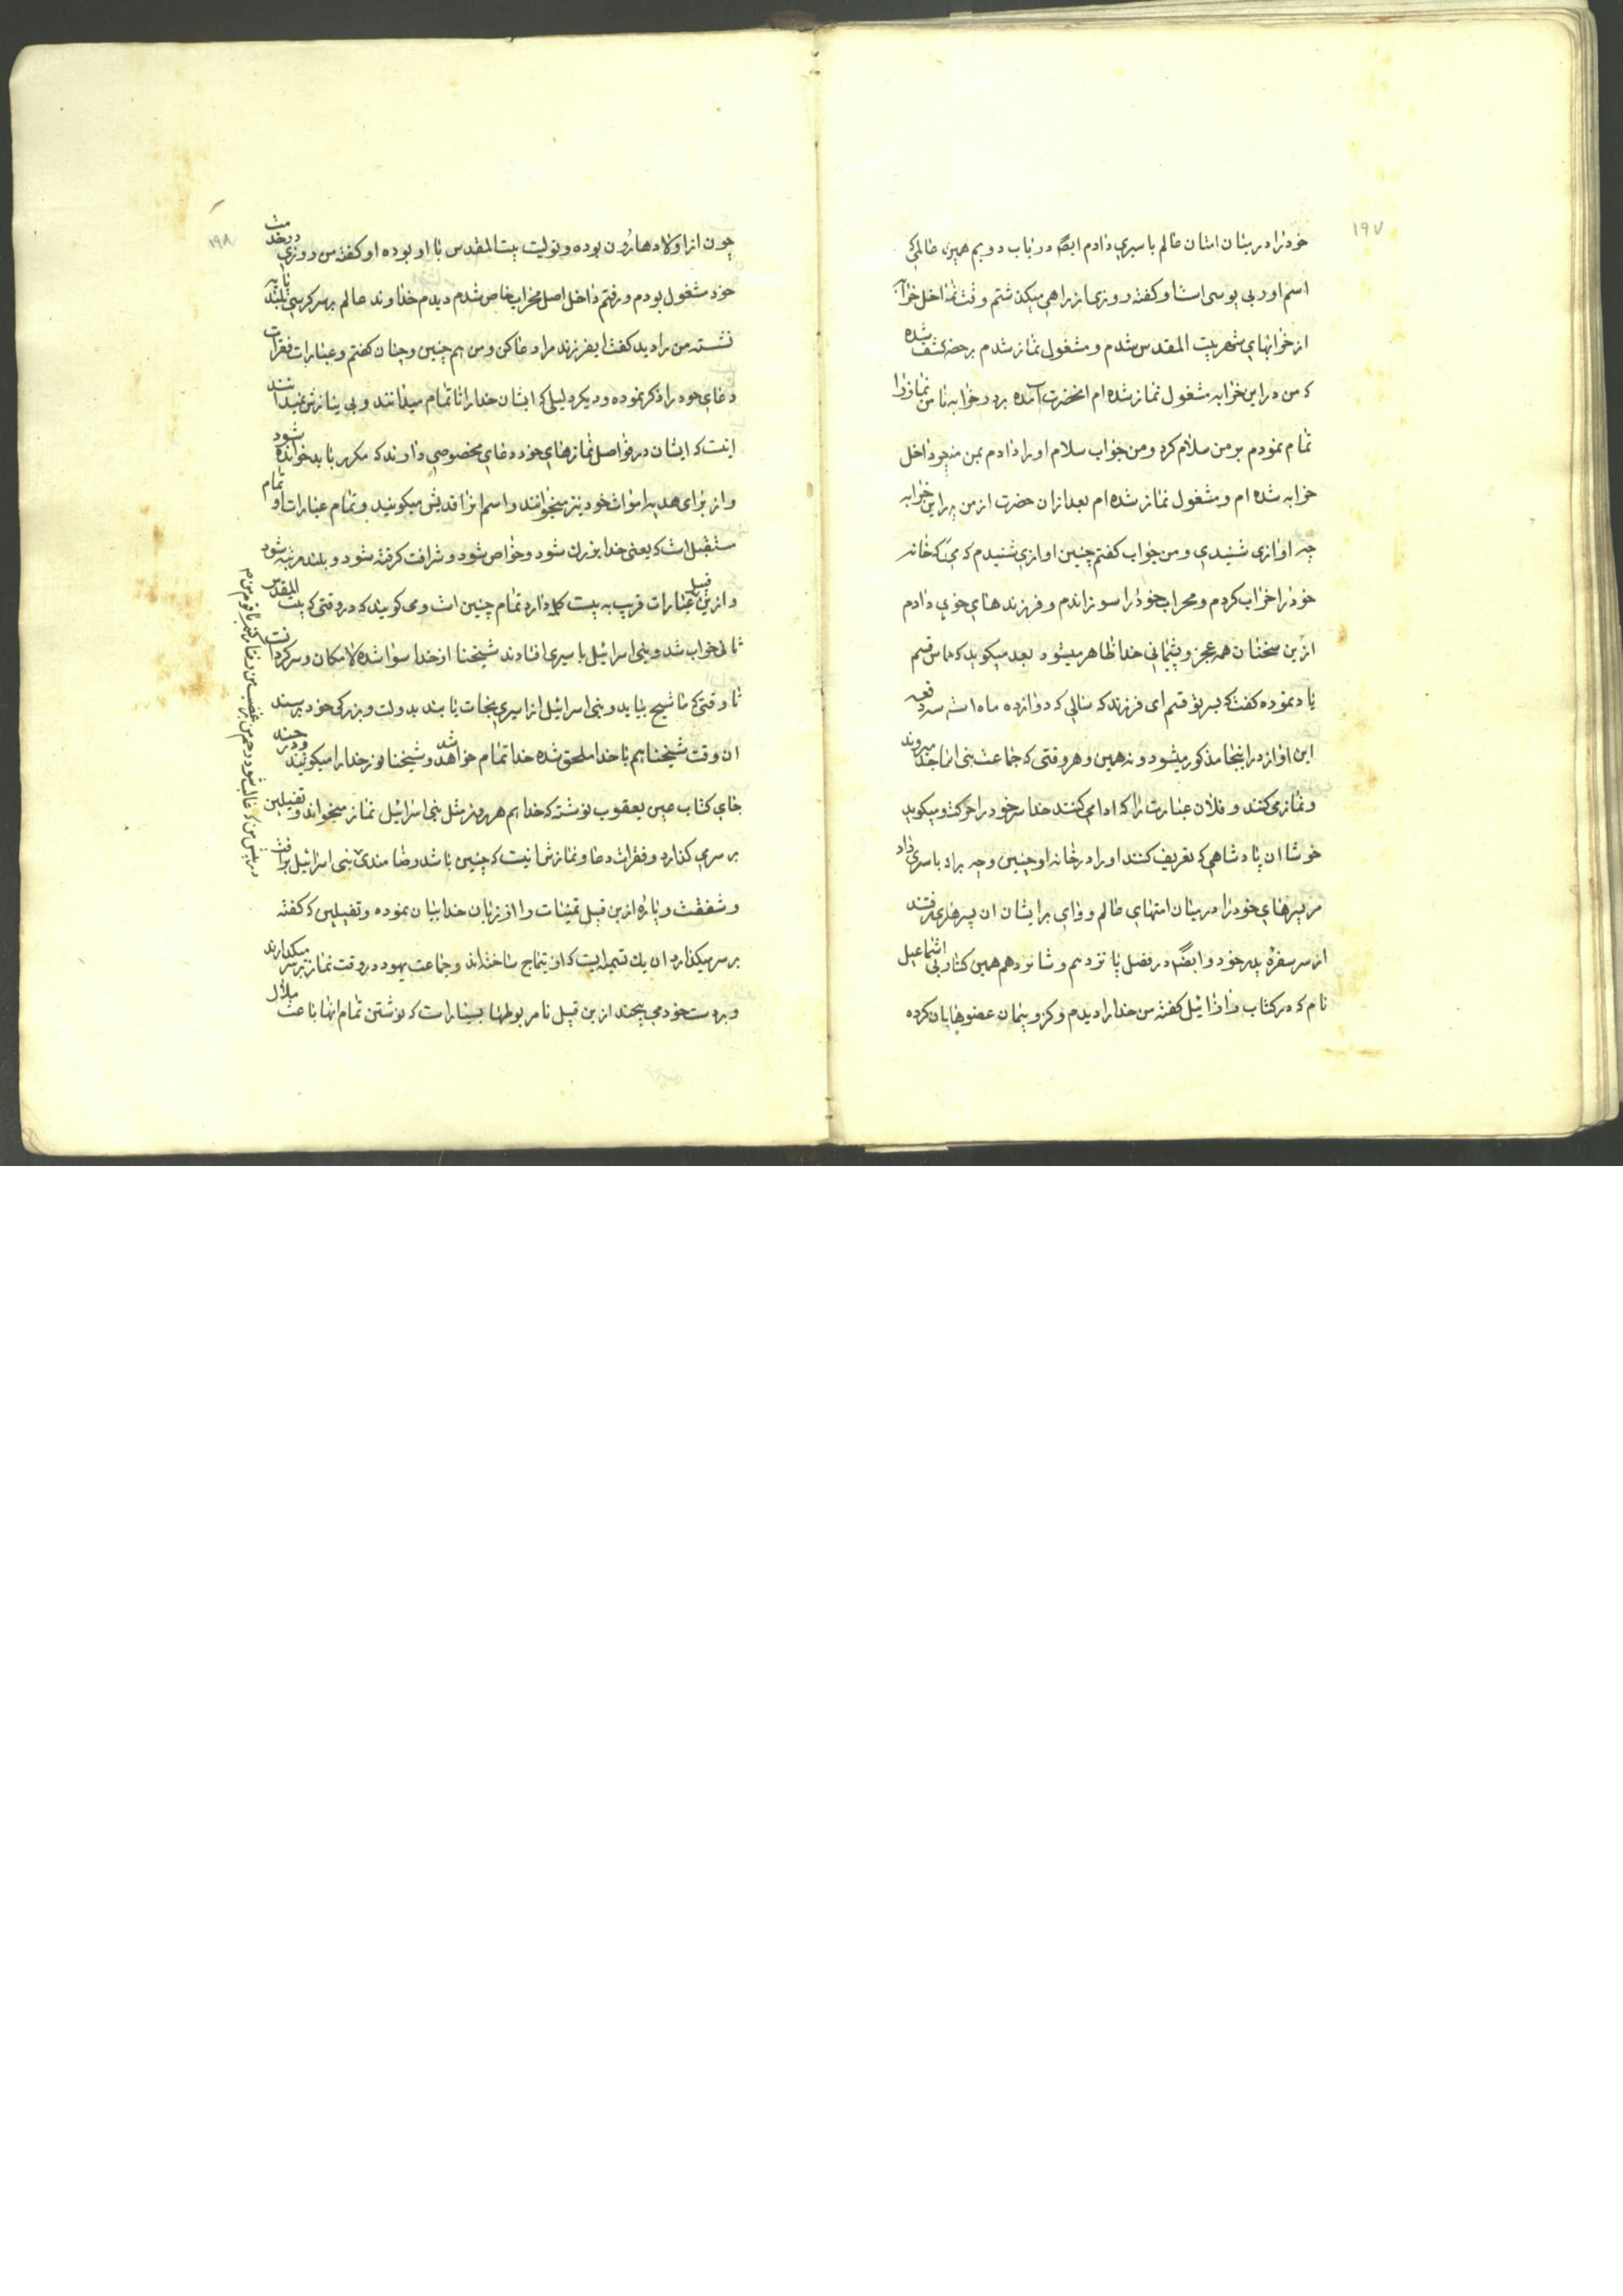 ۱۹۷
خود را در میان امتان ظالم باسیری دادم ایضا در باب دویم همین ظالمی که
اسم او ربی یوسی است او گفته روزی از راهی میگذشتم وقت نماز داخل خرابه
از خرابهای شهر بیت المقدس شدم و مشغول نماز شدم بر حضرت کشف شده
که من در این خرابه مشغول نماز شده ام انحضرت آمده بر در خرابه تا من نماز را
تمام نمودم بر من سلام کرد و من جواب سلام او را دادم بمن داخل
خرابه شده ام و مشغول نماز شده ام بعد از ان حضرت از من در این خرابه
چه اوازی شنیدی و من جواب گفتم چنین اوازی شنیدم که می که خانه
خود را خراب کردم و محراب خود را سوزاندم و فرزندهای خودی دادم
از این سخنان همه عجز و پشیمانی خدا ظاهر میشود بعد میگوید که الیاس قسم
یاد نموده گفت که بسر تو قسم ای فرزند که سالی که دوازده ماه است سه دفعه
این اواز در اینجا مذکور میشود و نه همین و هر وقتی که جماعت بنی انها جدا میروند
و نماز می کنند و فلان عبارت را که ادا می کنند خدا سر خود را حرکت و میگوید
خوشا ان پادشاهی که تعریف کنند او را در خانه او چنین و چه براد باسیری داد
مر پسرهای خود را در میان امتهای ظالم و وای بر ایشان ان پسرها که رفتند
از سر سفره پدر خود و ایضا در فصل پانزدهم و شانزدهم همین کتاب ربی اشماعیل
نام که در کتاب وا و ائیل گفته من خدا را دیدم و کرّوبیمان عضوها بان کرده
۱۹۸
چون از اولاد هارون بوده و تولیت بیت المقدس با او بوده او گفته من روزی در خدمت
خود مشغول بودم و رفتم داخل اصل محراب خاص شدم دیدم خداوند عالم بر سر کرسی بلند پایه
نشسته من را دید گفت ایفرزند مرا دعا کن و من هم چنین و چنان گفتم و عبارات فقرات
دعای خود را ذکر نموده و دیگر دلیلی که ایشان خدا را ناتمام میدانند و بی نیازش نمیدانند
اینست که ایشان در فواصل نمازهای خود دعای مخصوصی دارند که مکرر باید خوانده شود
و از برای هدیه اموات خود نیز میخوانند و اسم انرا قدیش میگویند و تمام عبارات او تمام
مستقبل است که یعنی خدا بزرگ شود و خواص شود و شرافت گرفته شود و بلند مرتبه شود
و از این قبیل عبارات قریب به بیست کلمه دارد تمام چنین است و می گویند که در وقتی که بیت المقدس
ثانی خراب شد و بنی اسرائیل باسیری افتادند شیخنا از خدا سوا شده لامکان و سرگردانست
تا وقتی که ماشیح بیاید و بنی اسرائیل از اسیری نجات یابند بدولت و بزرگی خود برسند
ان وقت شیخنا هم با خدا ملحق شده خدا تمام خواهد شد و شیخنا نور خدا را میگویند و در چند
جای کتاب عین یعقوب نوشته که خدا هم هر روز مثل بنی اسرائیل نماز میخواند و تفیلین
بر سر می گذارد و فقرات دعا و نمازش انیست که چنین باشد رضامندی بنی اسرائیل برافت
و شفقت و پاره از این قبیل تمنیات را از زبان خدا بیان نموده و تفیلین که گفته
بر سر میگذارد ان یک تسمه ایست که از تیماج ساخته اند و جماعت یهود در وقت نماز بر سر میگذارند
و بر دست خود می پیچند از این قبیل نامربوطها بسیار است که نوشتن تمام انها باعث ملال
در پیش من که غالب شود رحم من بر غضب من رفتار کنم با قوم من